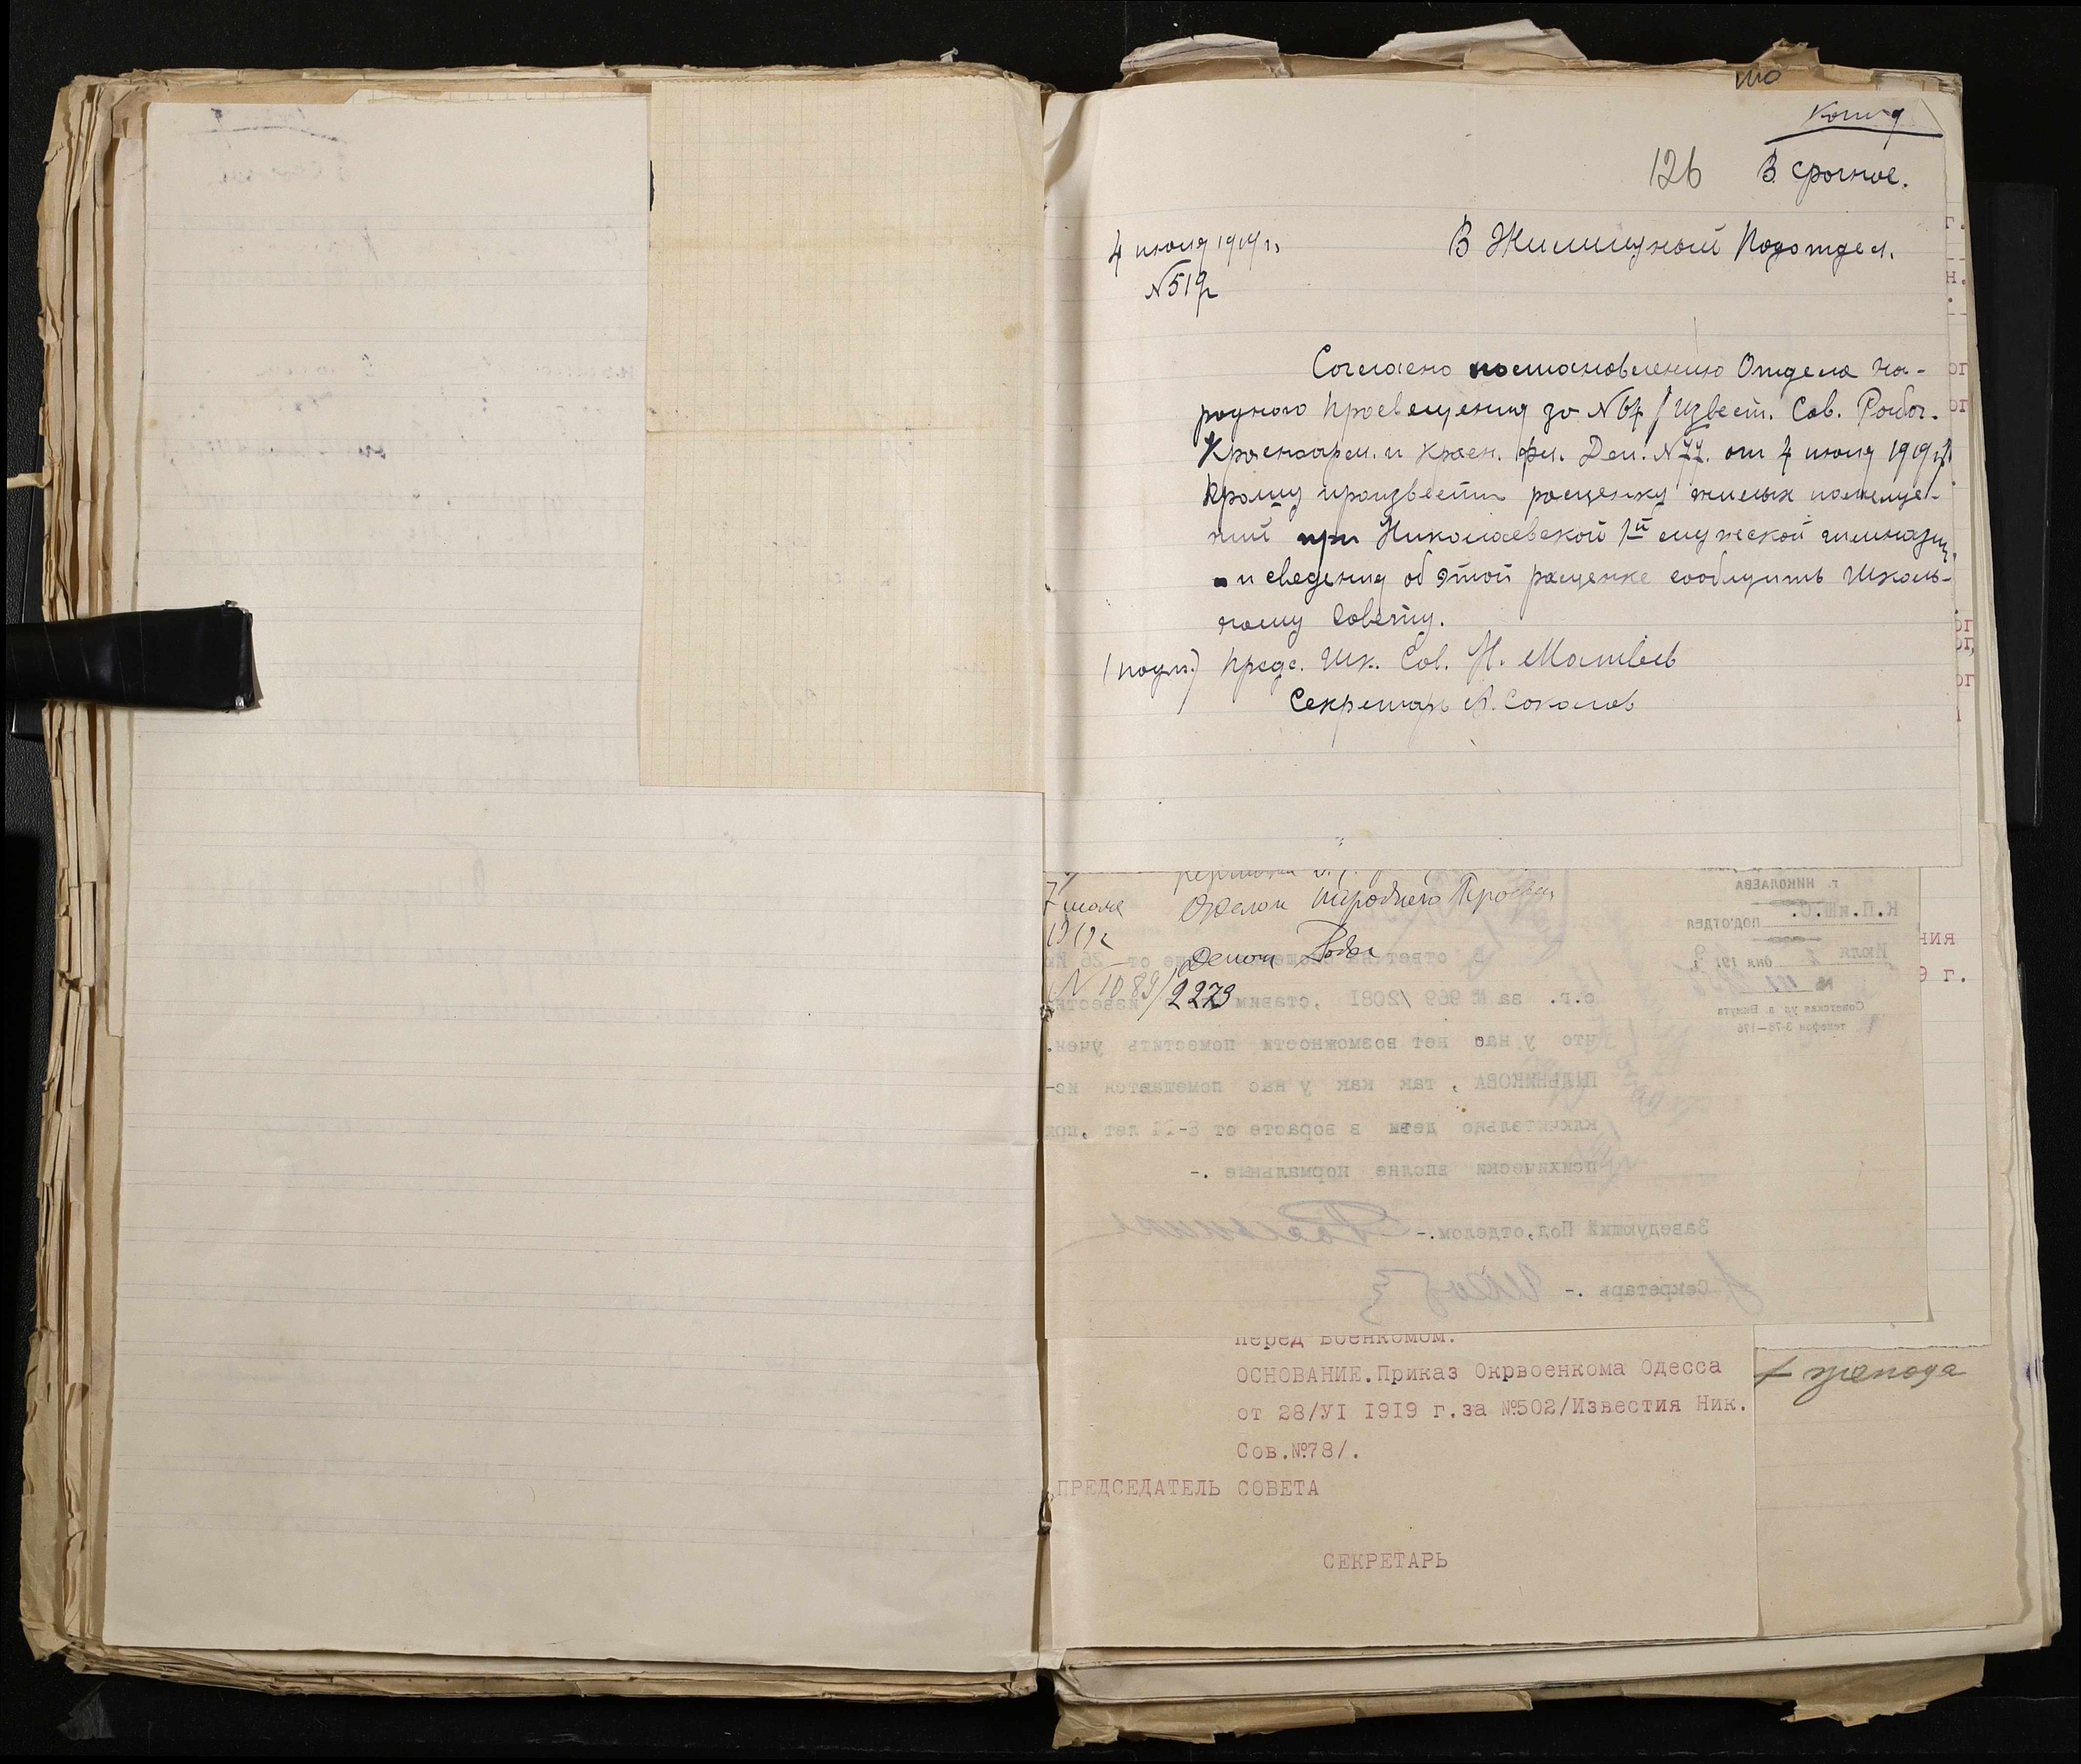 Копия
126 В. срочное.
4 июля 1919 г.
В Жилищный Подотдел.
№ 519
Согласно постановлению Отдела На-
родного Просвещения за № 64 /Извест. Сов. Рабоч.
Красноарм. и Красн. фл. Деп. № 77. от 4 июля 1919 г./
Прошу произвести расценку жилых помеще-
ний при Николаевской 1й мужской гимназии
и сведения об этой расценке сообщить Школь-
ному Совету.
(подп.) Предс. Шк. Сов. Н. Матвеев
Секретарь А. Соколов
7 июля
Отделом Народного
№ 1089/2273
г. НИКОЛАЕВА
К.П.и Ш.С.
подотдел
Июля 2 дня 191 9 г.
№
Советская ул
телефон 3-78—176
В ответ на от 26
с.г. за № 969 /2081 ,ставим известн
что у нас нет возможности поместить учен.
ПЫЛЬНИКОВА , так как у нас помещаются ис-
ключительно дети в ворасте от 8-11 лет ,при
психически вполне нормальные .-
Заведующий Под,отделом.-
Секретарь .-
перед Военкомом.
ОСНОВАНИЕ.Приказ Окрвоенкома Одесса
от 28/УІ 1919 г.за №502/Известия Ник.
Сов.№78/.
ПРЕДСЕДАТЕЛЬ СОВЕТА
СЕКРЕТАРЬ